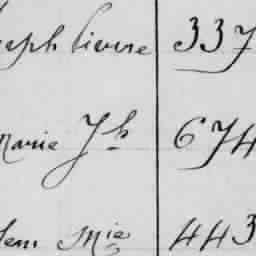 seph Pierre 337
Marie Jh 674
lem Mie 443